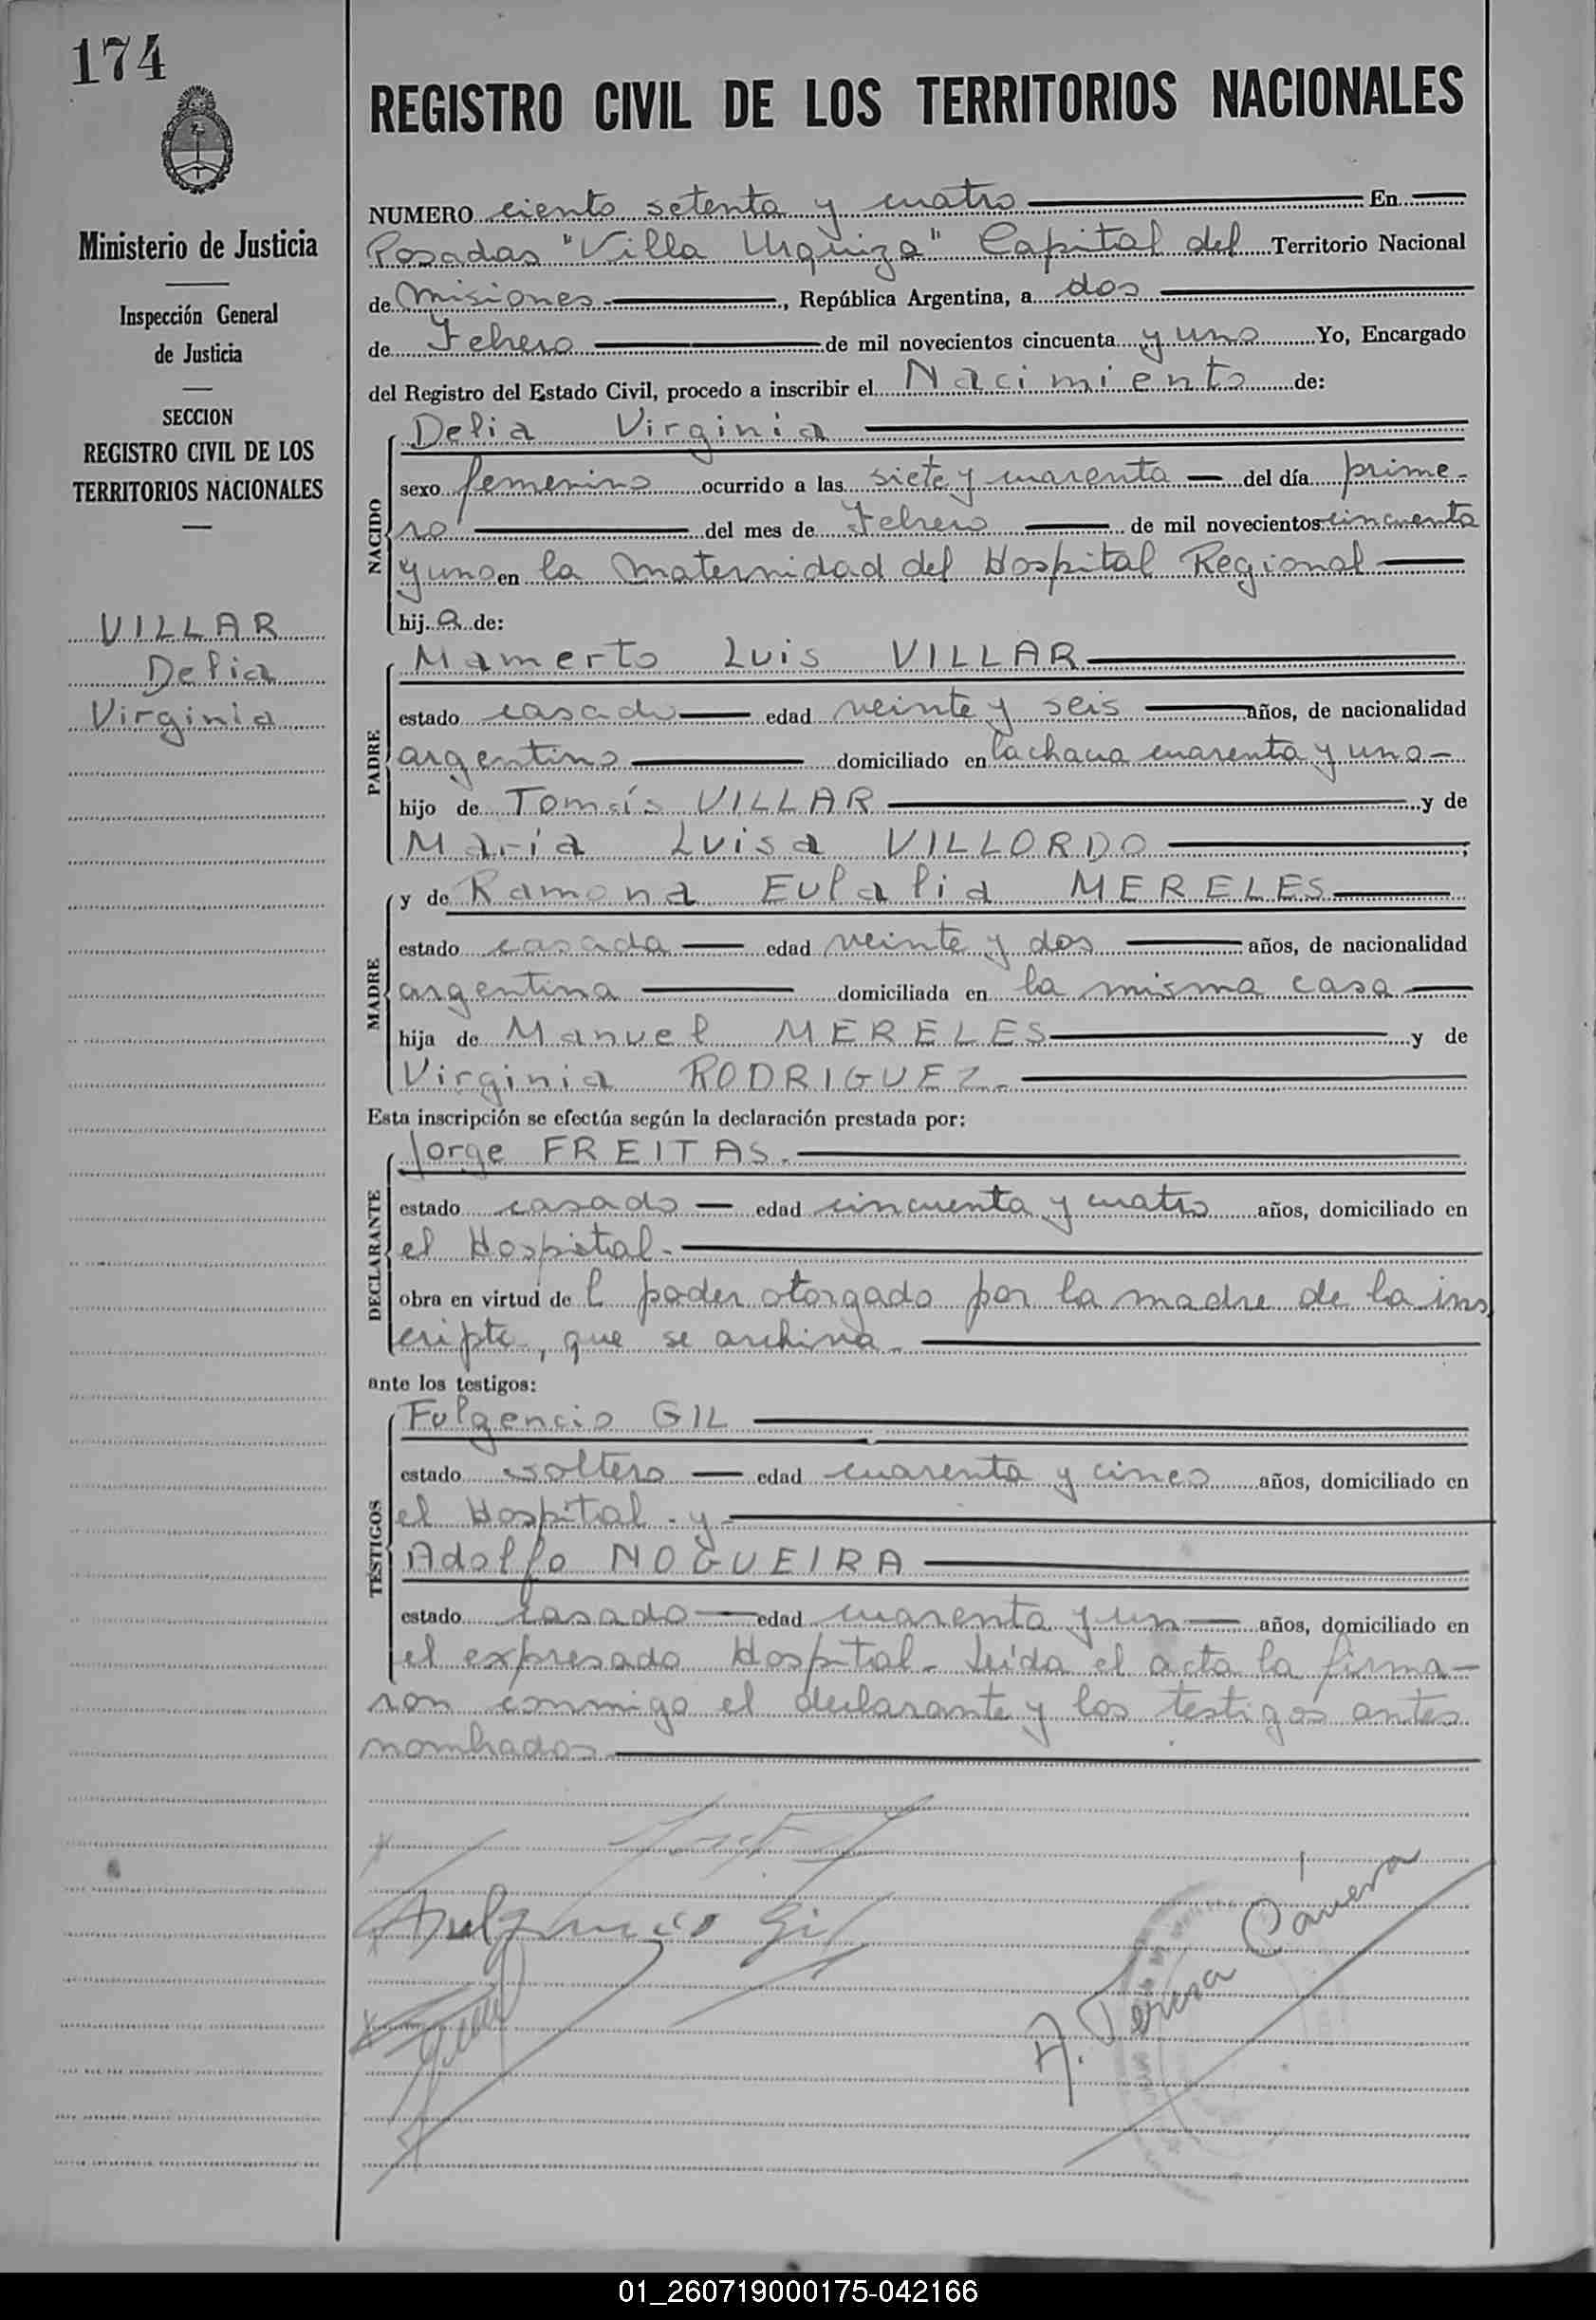 174
REGISTRO CIVIL DE LOS TERRITORIOS NACIONALES
Ministerio de Justicia
Inspección General
de Justicia
SECCION
REGISTRO CIVIL DE LOS
TERRITORIOS NACIONALES
VILLAR
Delia
Virginia
NUMERO ciento setenta y cuatro En
Posadas "Villa Urquiza" Capital del Territorio Nacional
de Misiones, República Argentina, a dos
de Febrero de mil novecientos cincuenta y uno Yo, Encargado
del Registro del Estado Civil, procedo a inscribir el Nacimiento de:
NACIDO
Delia Virginia
sexo femenino ocurrido a las siete y cuarenta del día prime-
ro del mes de Febrero de mil novecientos cincuenta
y uno en la Maternidad del Hospital Regional
hija de:
PADRE
Mamerto Luis VILLAR
estado casado edad veinte y seis años, de nacionalidad
argentino domiciliado en la chacra cuarenta y uno-
hijo de Tomás VILLAR y de
María Luisa VILLORDO;
MADRE
y de Ramona Eulalia MERELES
estado casada edad veinte y dos años, de nacionalidad
argentina domiciliada en la misma casa
hija de Manuel MERELES y de
Virginia RODRIGUEZ.-
Esta inscripción se efectúa según la declaración prestada por:
DECLARANTE
Jorge FREITAS.-
estado casado edad cincuenta y cuatro años, domiciliado en
el Hospital.-
obra en virtud del poder otorgado por la madre de la ins
cripta, que se archiva.-
ante los testigos:
TESTIGOS
Fulgencio GIL
estado soltero edad cuarenta y cinco años, domiciliado en
el Hospital - y -
Adolfo NOGUEIRA
estado casado edad cuarenta y un años, domiciliado en
el expresado Hospital - Leída el acta la firma-
ron conmigo el declarante y los testigos antes
nombrados
Fulgencio Gil
A. Teresa Cámera
01_260719000175-042166